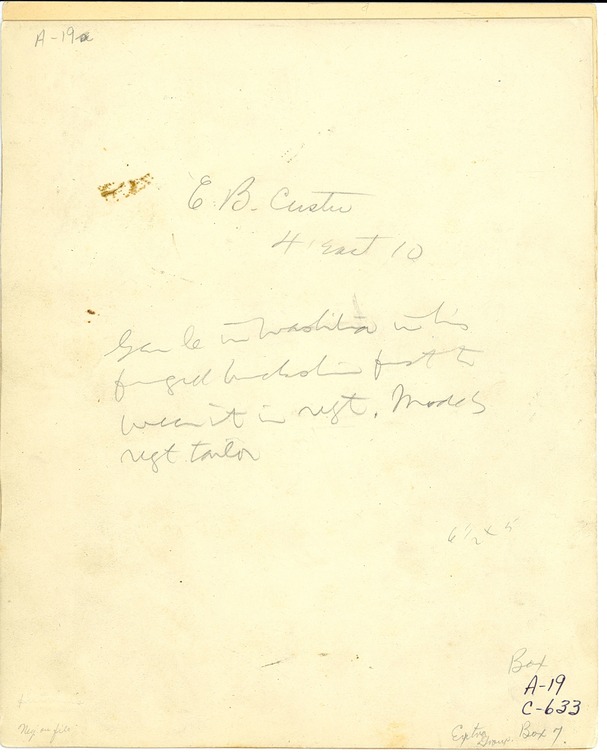 A-19a
E. B. Custer
4 East 10
Gen C in Washita in his
fringed buckskin first to
wear it in regt. Made by
regt tailor
6 1/2 x 5
Box
A-19
C-633
Neg on file
Extra Box 7.